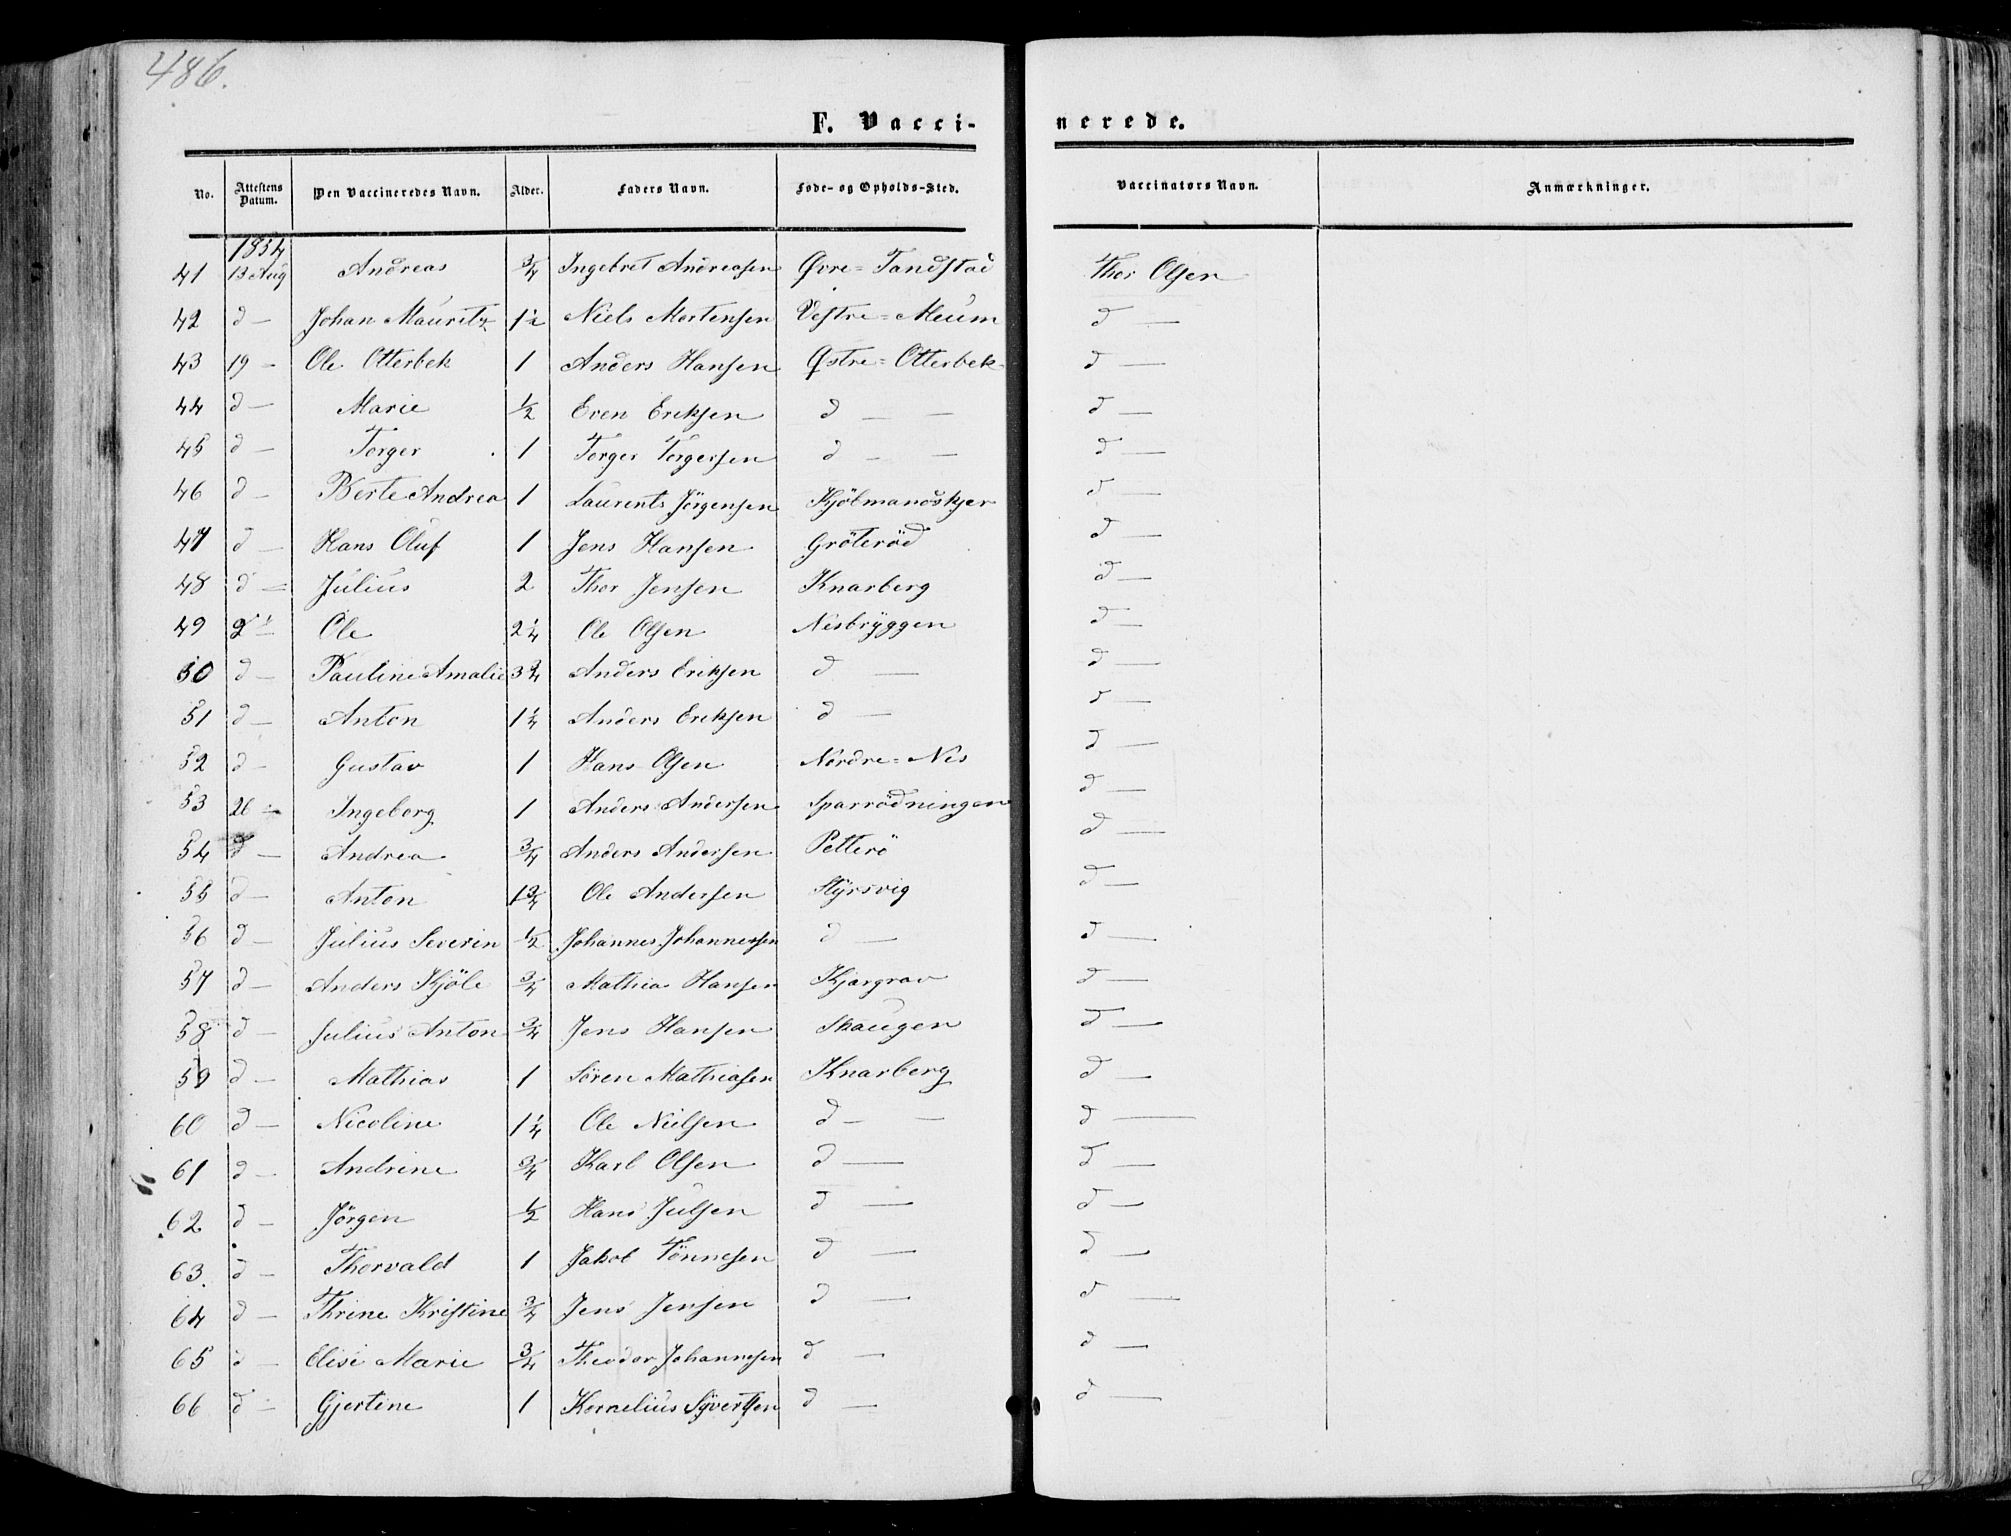 486.
F. Vacci-
nerede.
No. Attestens Datum. Den Vaccineredes Navn. Alder. Faders Navn. Føde- og Opholds-Sted. Vaccinators Navn. Anmærkninger.
1854
41 13 Aug Andreas 3/4 Ingebret Andreasen Øvre=Tandstad Thor Olsen
42 d — Johan Mauritz 1½ Niels Mortensen Vestre=Meum d —
43 19 — Ole Otterbek 1 Anders Hansen Østre=Otterbek d —
44 d — Marie 1/2 Even Eriksen d — — d —
45 d — Torger 1 Torger Torgersen d — — d —
46 d — Berte Andrea 1 Laurents Jörgensen Kjöbmandskjer d —
47 d — Hans Oluf 1 Jens Hansen Gröteröd d —
48 d — Julius 2 Thor Jensen Knarberg d —
49 d — Ole 2¼ Ole Olsen Nesbryggen d —
50 d — Pauline Amalie 3¾ Anders Eriksen d — d —
51 d — Anton 1¼ Anders Eriksen d — d —
52 d — Gustav 1 Hans Olsen Nordre=Nes d —
53 26 — Ingeborg 1 Anders Andersen Sparrödningen d —
54 d — Andrea 3/4 Anders Andersen Petterö d —
55 d — Anton 1¾ Ole Andersen Styrsvig d —
56 d — Julius Severin 1/2 Johannes Johannessen d — d —
57 d — Anders Kjöle 3/4 Mathias Hansen Kjærgrav d —
58 d — Julius Anton 3/4 Jens Hansen Skaugen d —
59 d — Mathias 1 Sören Mathiasen Knarberg d —
60 d — Nicoline 1¼ Ole Nielsen d — — d —
61 d — Andrine 3/4 Karl Olsen d — d —
62 d — Jörgen 1/2 Hans Julsen d — d —
63. d — Thorvald 1 Jakob Tönnesen d — d —
64 d — Thrine Kristine 3/4 Jens Jensen d — d —
65 d — Elise Marie 3/4 Theodor Johannesen d — d —
66 d — Gjertine 1 Kornelius Syvertsen d — d —